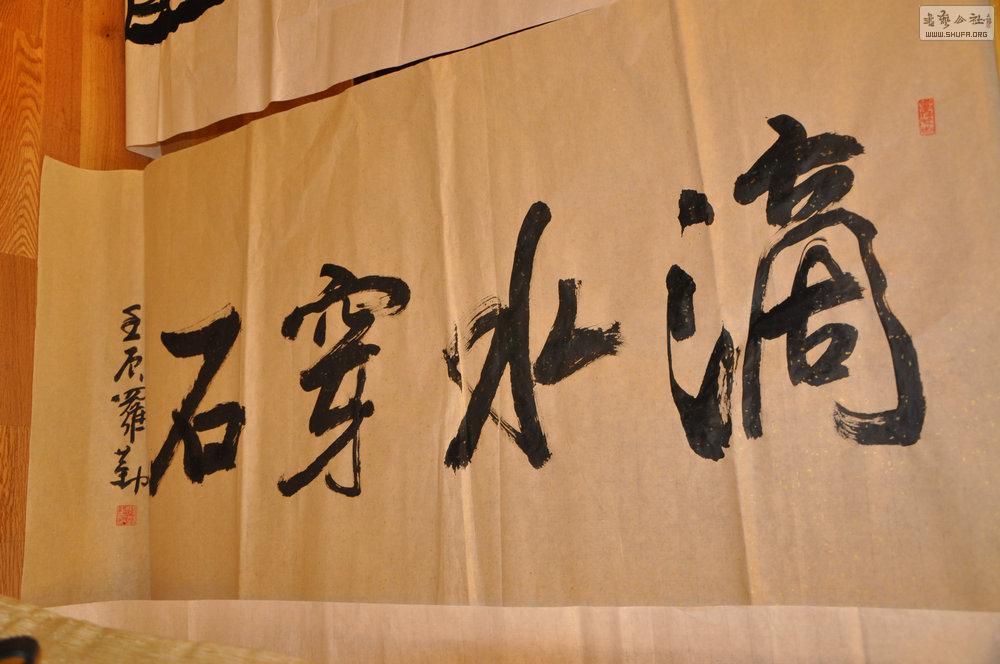 滴水穿石
壬辰 罗勤
书艺公社
WWW.SHUFA.ORG